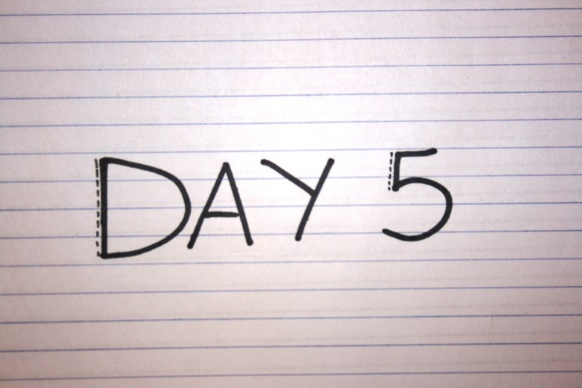 DAY 5